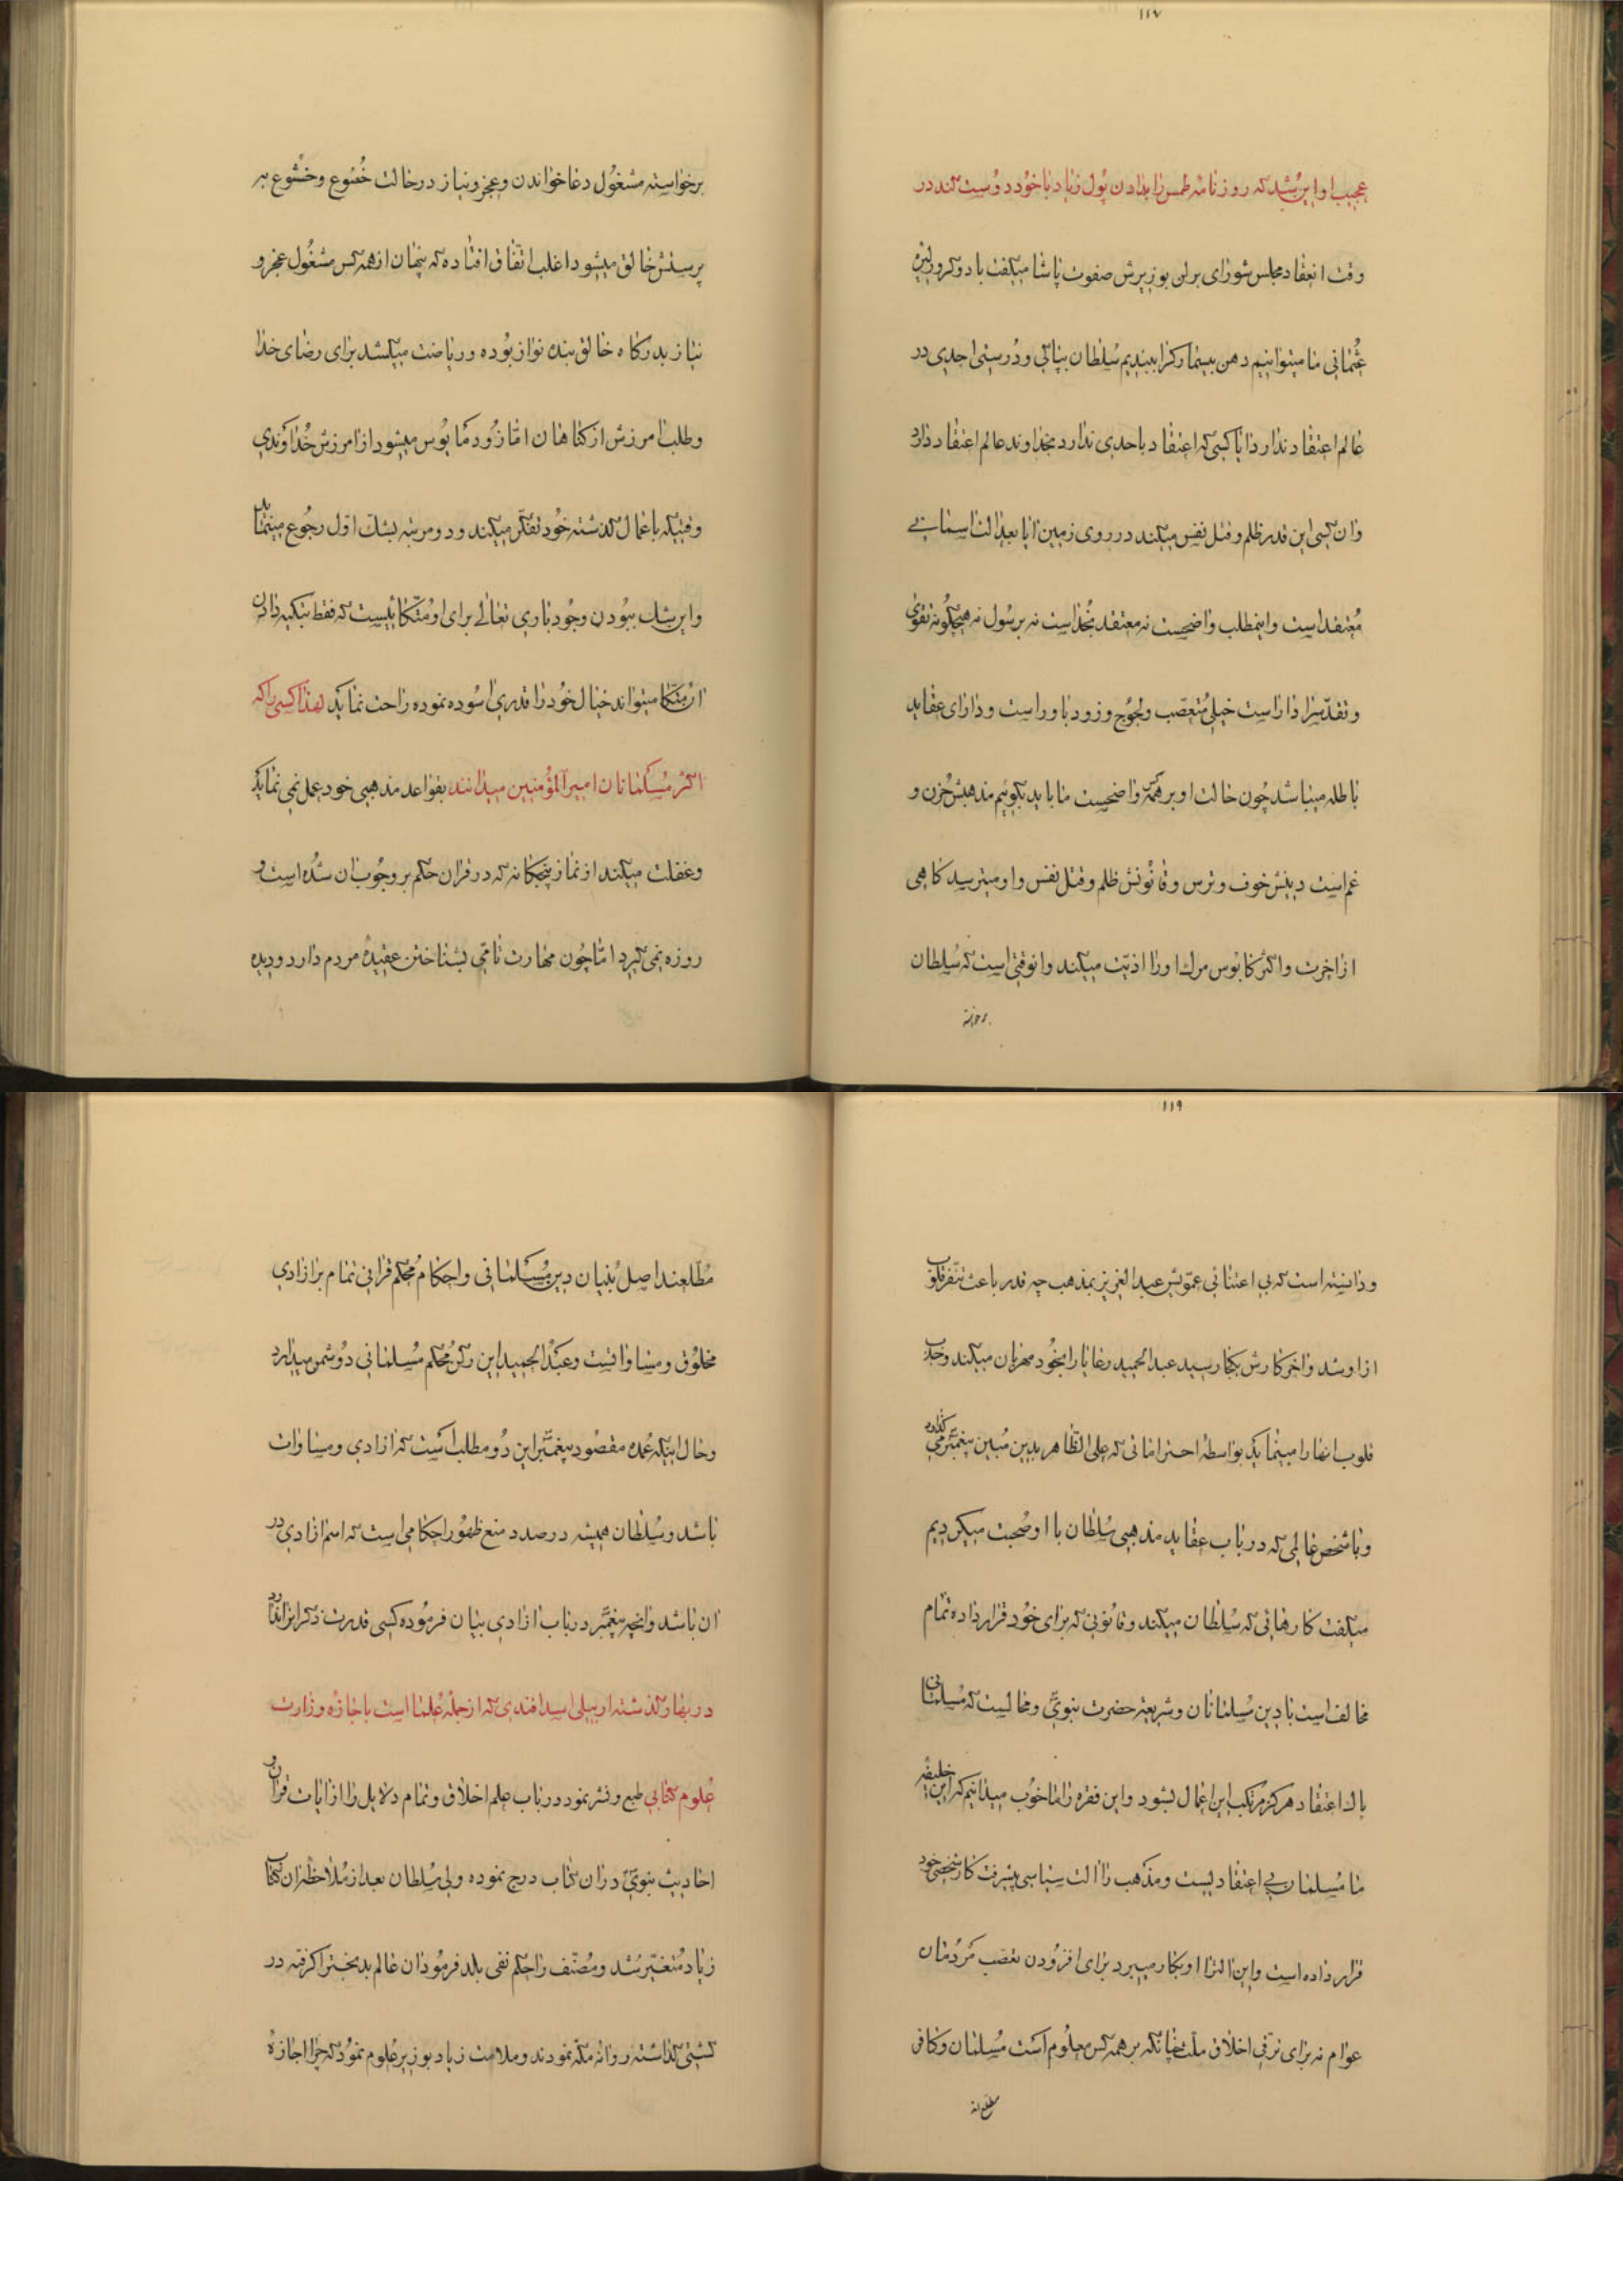 ١١٧
عجیب او این شد که روزنامهٔ طمس را بدادن پول زیاد با خود دوست کند در
وقت انعقاد مجلس شورای برلن بوزیرش صفوت پاشا میگفت با دو کرور لیرهٔ
عثمانی ما میتوانیم دهن بیسمارک را ببندیم سلطان بپاکی و درستی احدی در
عالم اعتقاد ندارد ایا کسی که اعتقاد باحدی ندارد بخداوند عالم اعتقاد دارد
و ان کسی این قدر ظلم و قتل نفس میکند در روی زمین ایا بعدالت اسمانی
معتقد است و اینمطلب واضحست نه معتقد بخداست نه برسول نه هیچگونه تقوی
و تقدسرا داراست خیلی متعصب و لجوج و زود باور است و دارای عقاید
باطله میباشد چون حالت او بر همه واضحست ما باید بگوئیم مذهبش حزن و
غم است دینش خوف و ترس و قانونش ظلم و قتل نفس و او میترسد کاهی
از اخرت و اکثر کابوس مرک او را اذیت میکند و انوقتی است که سلطان
برخواسته
برخواسته مشغول دعا خواندن و عجز و نیاز در حالت خضوع و خشوع به
پرستش خالق میشود اغلب اتفاق افتاده که پنهان از همه کس مشغول عجز و
نیاز بدرکاه خالق بنده نواز بوده و ریاضت میکشد برای رضای خدا
و طلب امرزش از کناهان اما زود مایوس میشود از امرزش خداوندی
وقتیکه باعمال کذشته خود تفکر میکند و دو مرتبه بشک اول رجوع مینماید
و این شک ببودن وجود باری تعالی برای او متکائیست که فقط بتکیه دادن
ان متکا میتواند خیال خود را قدری اسوده نموده راحت نماید لهذا کسی را که
اکثر مسلمانان امیرالمؤمنین میدانند بقواعد مذهبی خود عمل نمی نماید
و غفلت میکند از نماز پنجکانه که در قران حکم بر وجوب ان شده است و
روزه نمی کیرد اما چون مهارت تامی بشناختن عقیدهٔ مردم دارد و دیده
١١٩
و دانسته است که بی اعتنائی عمویش عبدالعزیز بمذهب چه قدر باعث تنفر قلوب
از او شد و اخر کارش بکجا رسید عبدالحمید رعایا را بخود مهربان میکند و جذب
قلوب انها را مینماید بواسطهٔ احتراماتی که علی الظاهر بدین مبین پیغمبر می کذارد
و با شخص عالمی که در باب عقاید مذهبی سلطان با او صحبت میکردیم
میکفت کارهائی که سلطان میکند و قانونی که برای خود قرار داده تمام
مخالف است با دین مسلمانان و شریعة حضرت نبوی و محالست که مسلمانی
پاک اعتقاد هرکز مرتکب این اعمال بشود و این فقره را ما خوب میدانیم که این خلیفهٔ
ما مسلمان بی اعتقادیست و مذهب را الت سیاسی پیشرفت کار شخصی خود
قرار داده است و این الترا او بکار میبرد برای افزودن تعصب مردمان
عوام نه برای ترقی اخلاق ملت چنانکه بر همه کس معلوم است مسلمان و کافر
مطلعند
مطلعند اصل بنیان دین مسلمانی و احکام محکم قرانی تمام بر ازادی
مخلوق و مساواتست و عبدالحمید این رکن محکم مسلمانی دوشمن میدارد
و حال اینکه عمده مقصود پیغمبر این دو مطلب است که ازادی و مساوات
باشد و سلطان همیشه در صدد منع ظهور احکامی است که اسم ازادی در
ان باشد و انچه پیغمبر در باب ازادی بیان فرموده کسی قدرت ذکر انرا ندارد
در بهار کذشته اربیلی اسد افندی که از جملهٔ علما است باجازهٔ وزارت
علوم کتابی طبع و نشر نمود در باب علم اخلاق و تمام دلایل را از ایات قران و
احادیث نبوی در ان کتاب درج نموده ولی سلطان بعد از ملاحظهٔ ان کتاب
زیاد متغیر شد و مصنف را حکم نفی بلد فرمود ان عالم بدبخت را کرفته در
کشتی کذاشته روانه مکه نمودند و ملامت زیاد بوزیر علوم نمود که چرا اجازهٔ